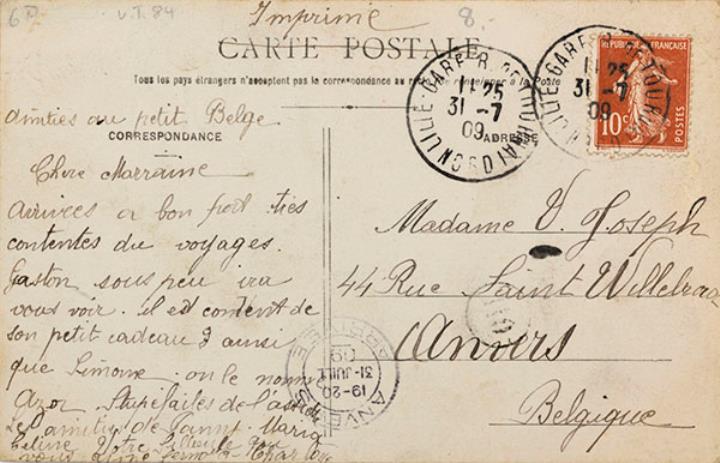 6
v.T. 84
Imprimé
8.
CARTE POSTALE
Tous les pays étrangers n'acceptent pas la correspondance au recto se renseigner à la Poste
amities au petit Belge
CORRESPONDANCE
ADRESSE
Chere Marraine
Arrivées a bon port très
contentes du voyages.
Gaston sous peu ira
vous voir. il est content de
son petit cadeau ainsi
que Simone. on le nomme
Azor. Stupéfaites de
Les amities de Maria
Céline Votre filleule qui
vous aime
Madame V. Joseph
44 Rue Saint Willebrord
Anvers
Belgique
LILLE-GARE
11 25
31 -7
09
NORD
REPUBLIQUE FRANÇAISE
10c
POSTES
LILLE-GARE
11 25
31 -7
09
ANVERS
19-20
31 JUIL
09